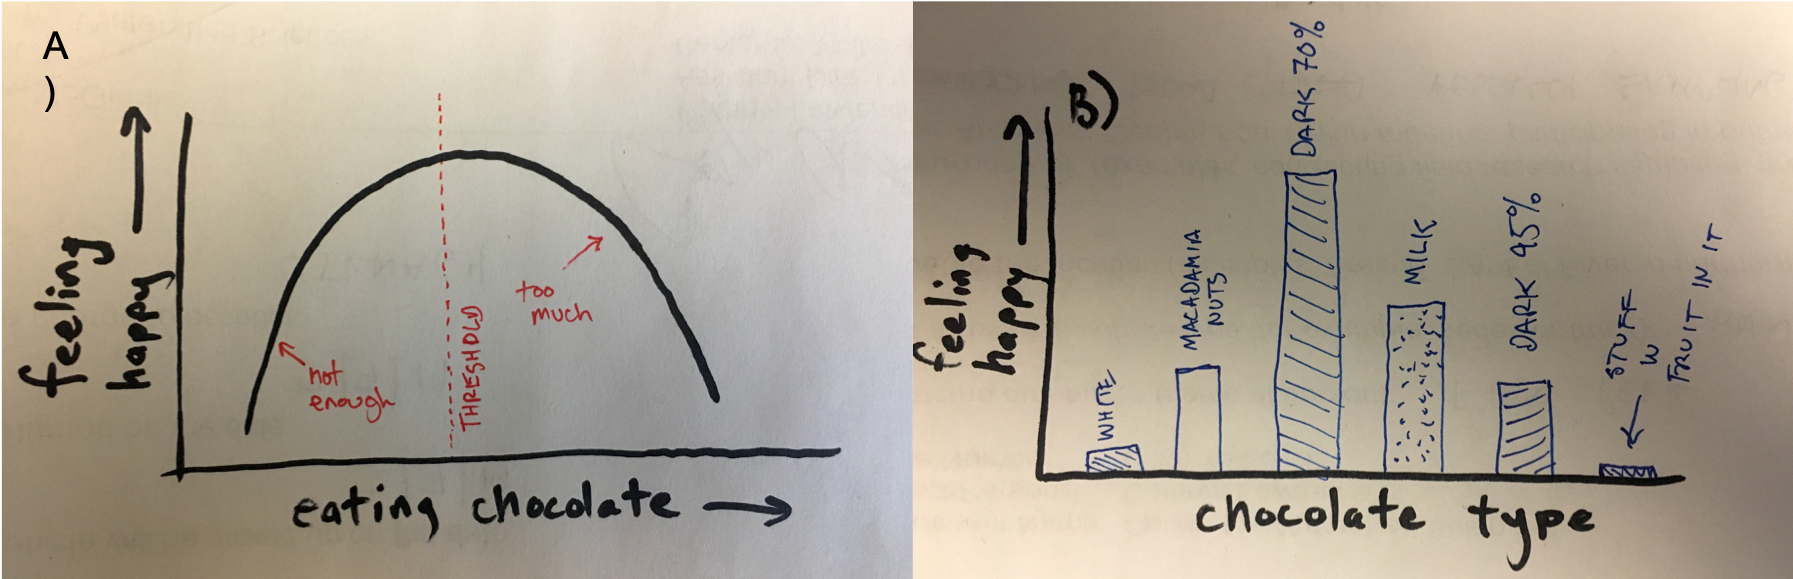 A
)
feeling
happy
not
enough
THRESHOLD
too
much
eating chocolate
B)
feeling
happy
WHITE
MACADAMIA
NUTS
DARK 70%
MILK
DARK 95%
STUFF
W
FRUIT IN IT
chocolate type